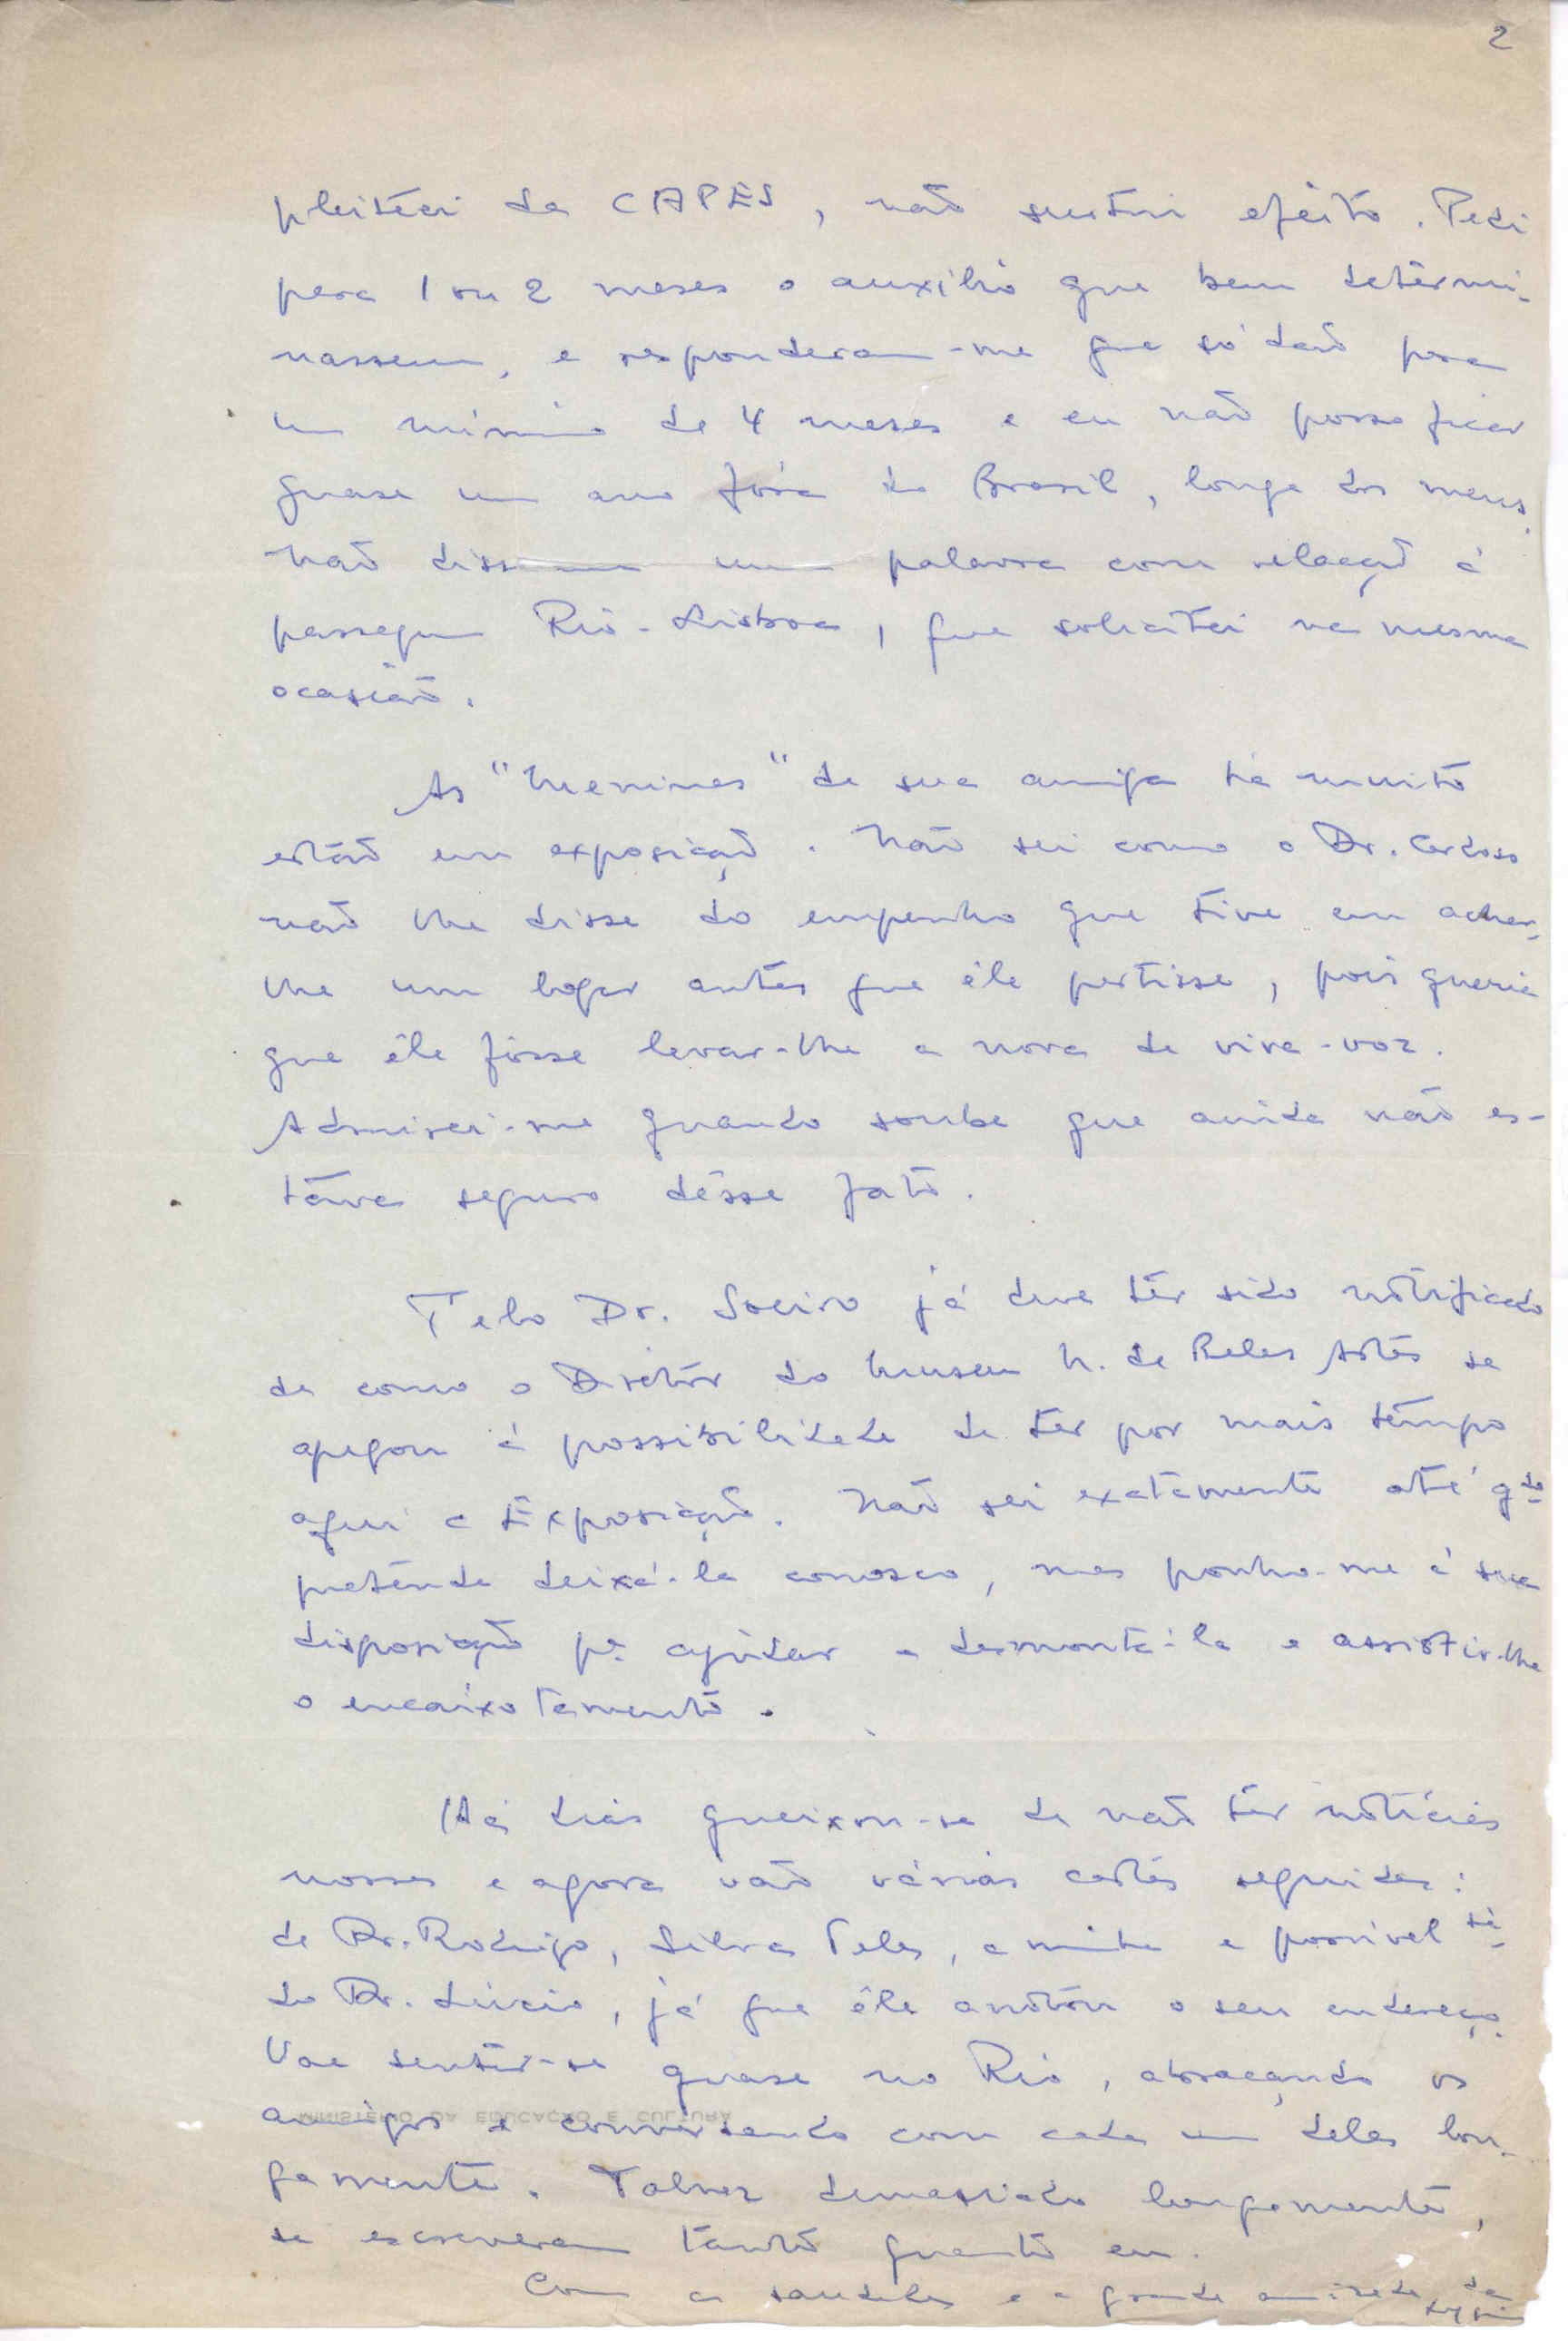 2
pleitéei da CAPES, não surtiu efeito. Pedi
para 1 ou 2 meses o auxílio que bem determi-
nassem, e responderam-me que só dão para
um mínimo de 4 meses e eu não posso ficar
quase um ano fóra do Brasil, longe dos meus.
Não disseram uma palavra com relação à
passagem Rio-Lisboa, que solicitei na mesma
ocasião.
As "Meninas" de sua amiga há muito
estão em exposição. Não sei como o Dr. Cardoso
não lhe disse do empenho que tive em achar-
lhe um lugar antes que êle partisse, pois queria
que êle fôsse levar-lhe a nova de viva-voz.
Admirei-me quando soube que ainda não es-
tava seguro dêsse fato.
Pelo Dr. Soeiro já deve ter sido notificado
de como o Diretor do Museu N. de Belas Artes se
apegou à possibilidade de ter por mais tempo
aqui a Exposição. Não sei exatamente até qdo
pretende deixá-la conosco, mas ponho-me à sua
disposição pª ajudar a desmontá-la e assistir-lhe
o encaixotamento.
Há dias queixou-se de não ter notícias
nossas e agora vão várias cartas seguidas:
de Dr. Rodrigo, Silva Teles, a minha e possivel te-
do Dr. Lúcio, já que êle anotou o seu endereço.
Vae sentir-se quase no Rio, abraçando os
amigos e conversando com cada um deles lon-
MINISTÉRIO DA EDUCAÇÃO E CULTURA
gamente. Talvez demasiado longamente,
se escreveram tanto quanto eu.
Com as saudades e a grande amizade da